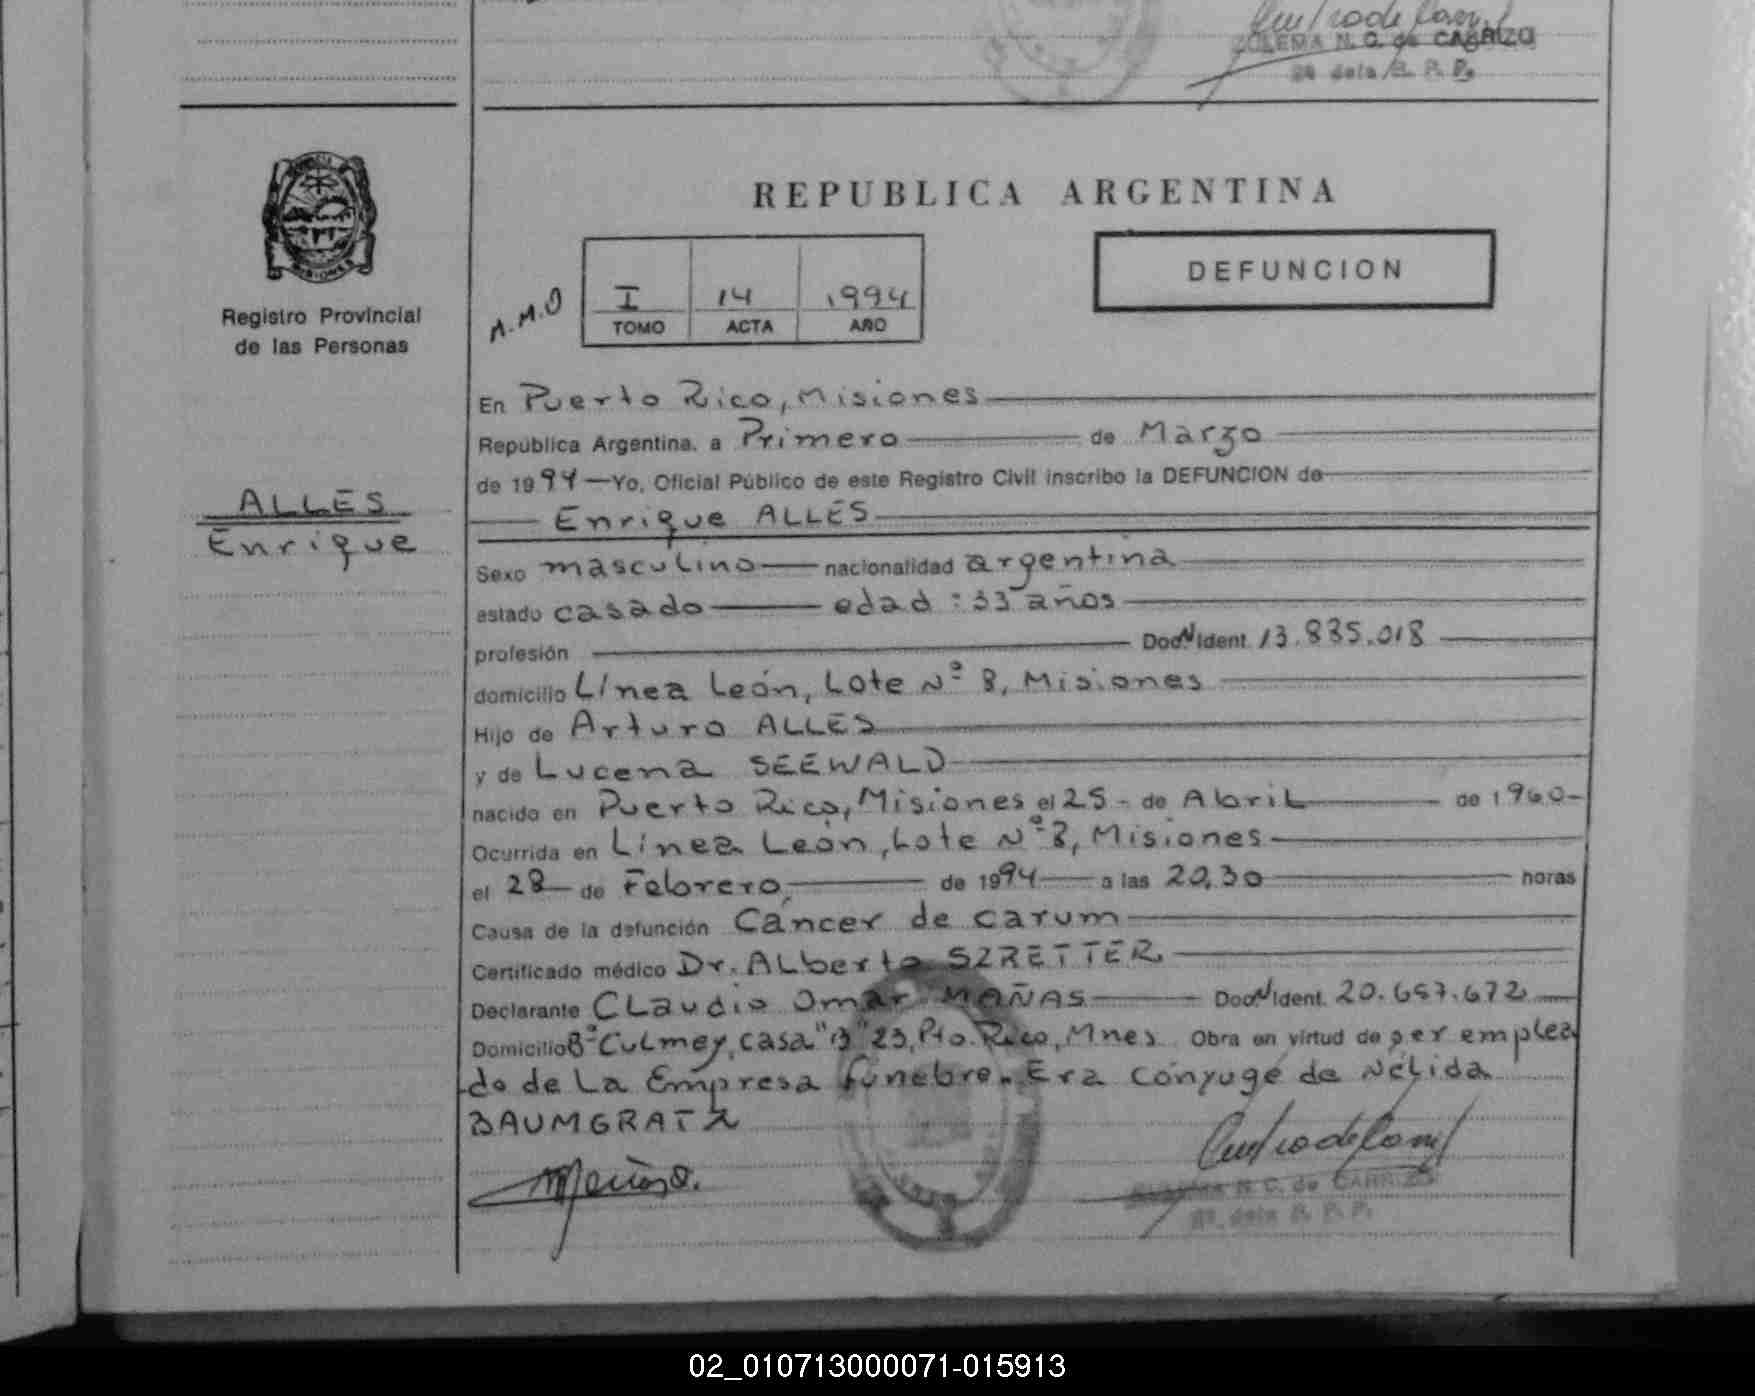 ZULEMA N. C. de CARRIZO
REPUBLICA ARGENTINA
DEFUNCION
MISIONES
Registro Provincial
de las Personas
A.M.D
I 14 1994
TOMO ACTA AÑO
En Puerto Rico, Misiones
República Argentina, a Primero de Marzo
de 1994 Yo, Oficial Público de este Registro Civil inscribo la DEFUNCION de
ALLES
Enrique
Enrique ALLES
Sexo masculino nacionalidad argentina
estado casado edad : 33 años
profesión Doc. N Ident. 13.835.018
domicilio Línea León, Lote Nº 8, Misiones
Hijo de Arturo ALLES
y de Lucena SEEWALD
nacido en Puerto Rico, Misiones el 25 - de Abril de 1960-
Ocurrida en Línea León, Lote Nº 8, Misiones
el 28 de Febrero, de 1994 a las 20,30 horas
Causa de la defunción Cáncer de carum
Certificado médico Dr. Alberto SZRETTER
Declarante Claudio Omar MAÑAS Doc. N Ident. 20.657.672
Domicilio Bº Culmey, casa "B" 23, Pto. Rico, Mnes. Obra en virtud de ser emplea
do de La Empresa fúnebre. Era cónyuge de Nélida
BAUMGRATZ
ZULEMA N. C. de CARRIZO
02_010713000071-015913